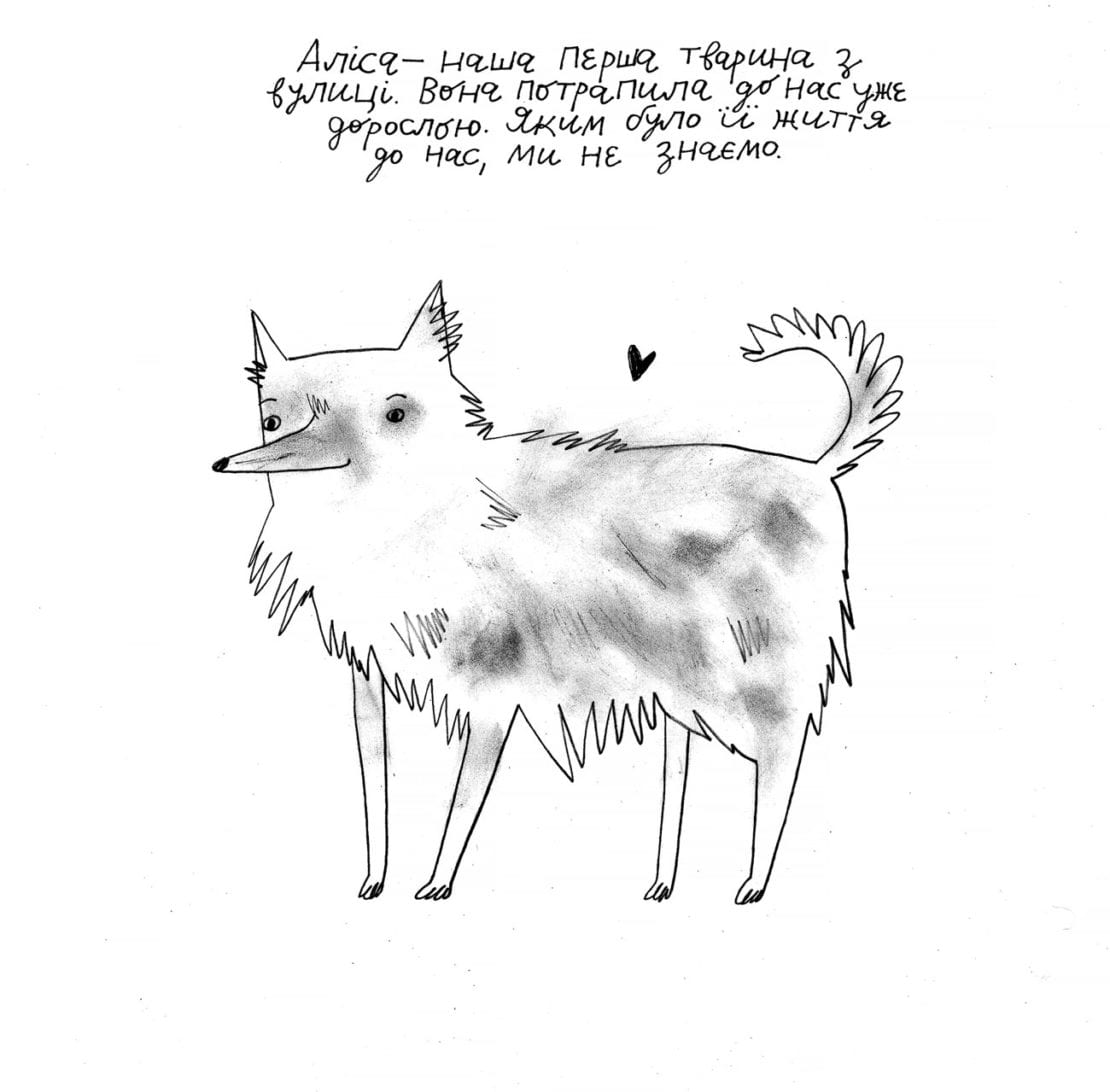 Аліса — наша перша тварина з
вулиці. Вона потрапила до нас уже
дорослою. Яким було її життя
до нас, ми не знаємо.